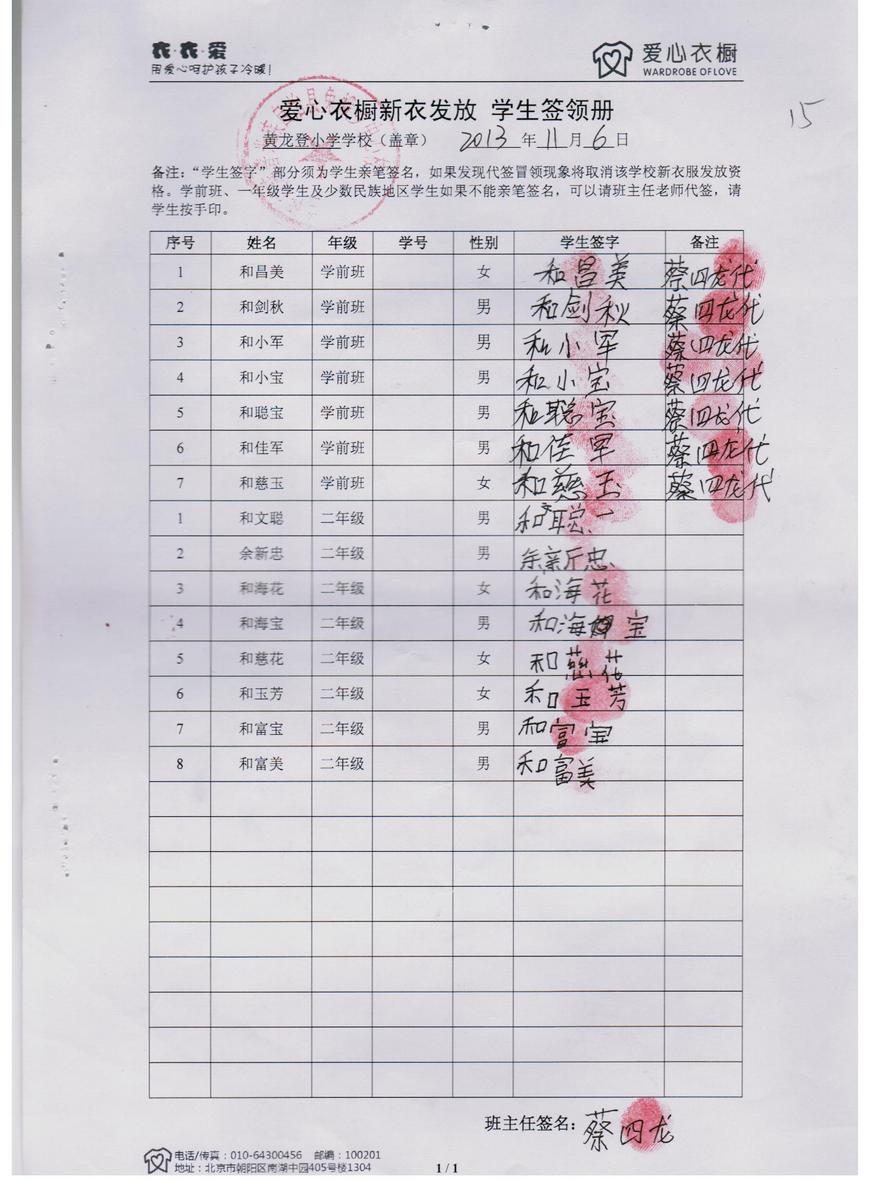 衣·衣·爱
用爱心呵护孩子冷暖!
爱心衣橱
WARDROBE OF LOVE
15
爱心衣橱新衣发放 学生签领册
黄龙登小学学校（盖章） 2013 年 11 月 6 日
备注：“学生签字”部分须为学生亲笔签名，如果发现代签冒领现象将取消该学校新衣服发放资
格。学前班、一年级学生及少数民族地区学生如果不能亲笔签名，可以请班主任老师代签，请
学生按手印。
序号 姓名 年级 学号 性别 学生签字 备注
1 和昌美 学前班 女 和昌美 蔡四龙代
2 和剑秋 学前班 男 和剑秋 蔡四龙代
3 和小军 学前班 男 和小军 蔡四龙代
4 和小宝 学前班 男 和小宝 蔡四龙代
5 和聪宝 学前班 男 和聪宝 蔡四龙代
6 和佳军 学前班 男 和佳军 蔡四龙代
7 和慈玉 学前班 女 和慈玉 蔡四龙代
1 和文聪 二年级 男 和文聪
2 余新忠 二年级 男 余新忠
3 和海花 二年级 女 和海花
4 和海宝 二年级 男 和海宝
5 和慈花 二年级 女 和慈花
6 和玉芳 二年级 女 和玉芳
7 和富宝 二年级 男 和富宝
8 和富美 二年级 男 和富美
班主任签名：蔡四龙
电话/传真：010-64300456 邮编：100201
地址：北京市朝阳区南湖中园405号楼1304
1 / 1